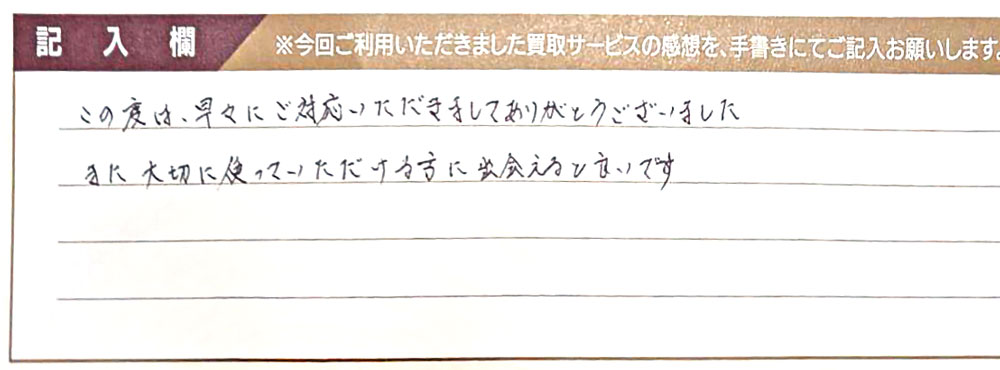 記入欄
※今回ご利用いただきました買取サービスの感想を、手書きにてご記入お願いします。
この度は、早々にご対応いただきましてありがとうございました
また大切に使っていただける方に出会えると良いです